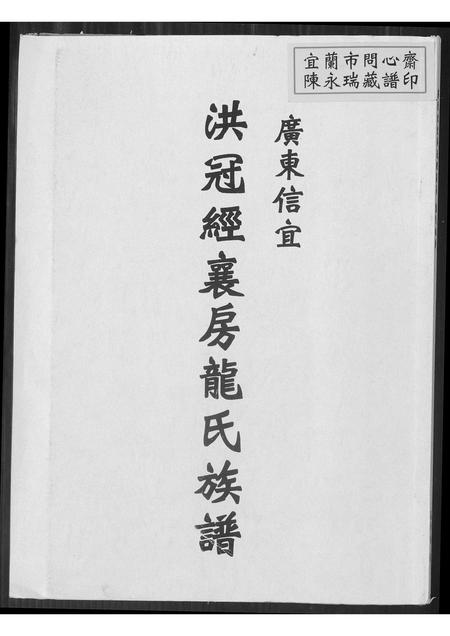 宜蘭市問心齋
陳永瑞藏譜印
廣東信宜
洪冠經襄房龍氏族譜